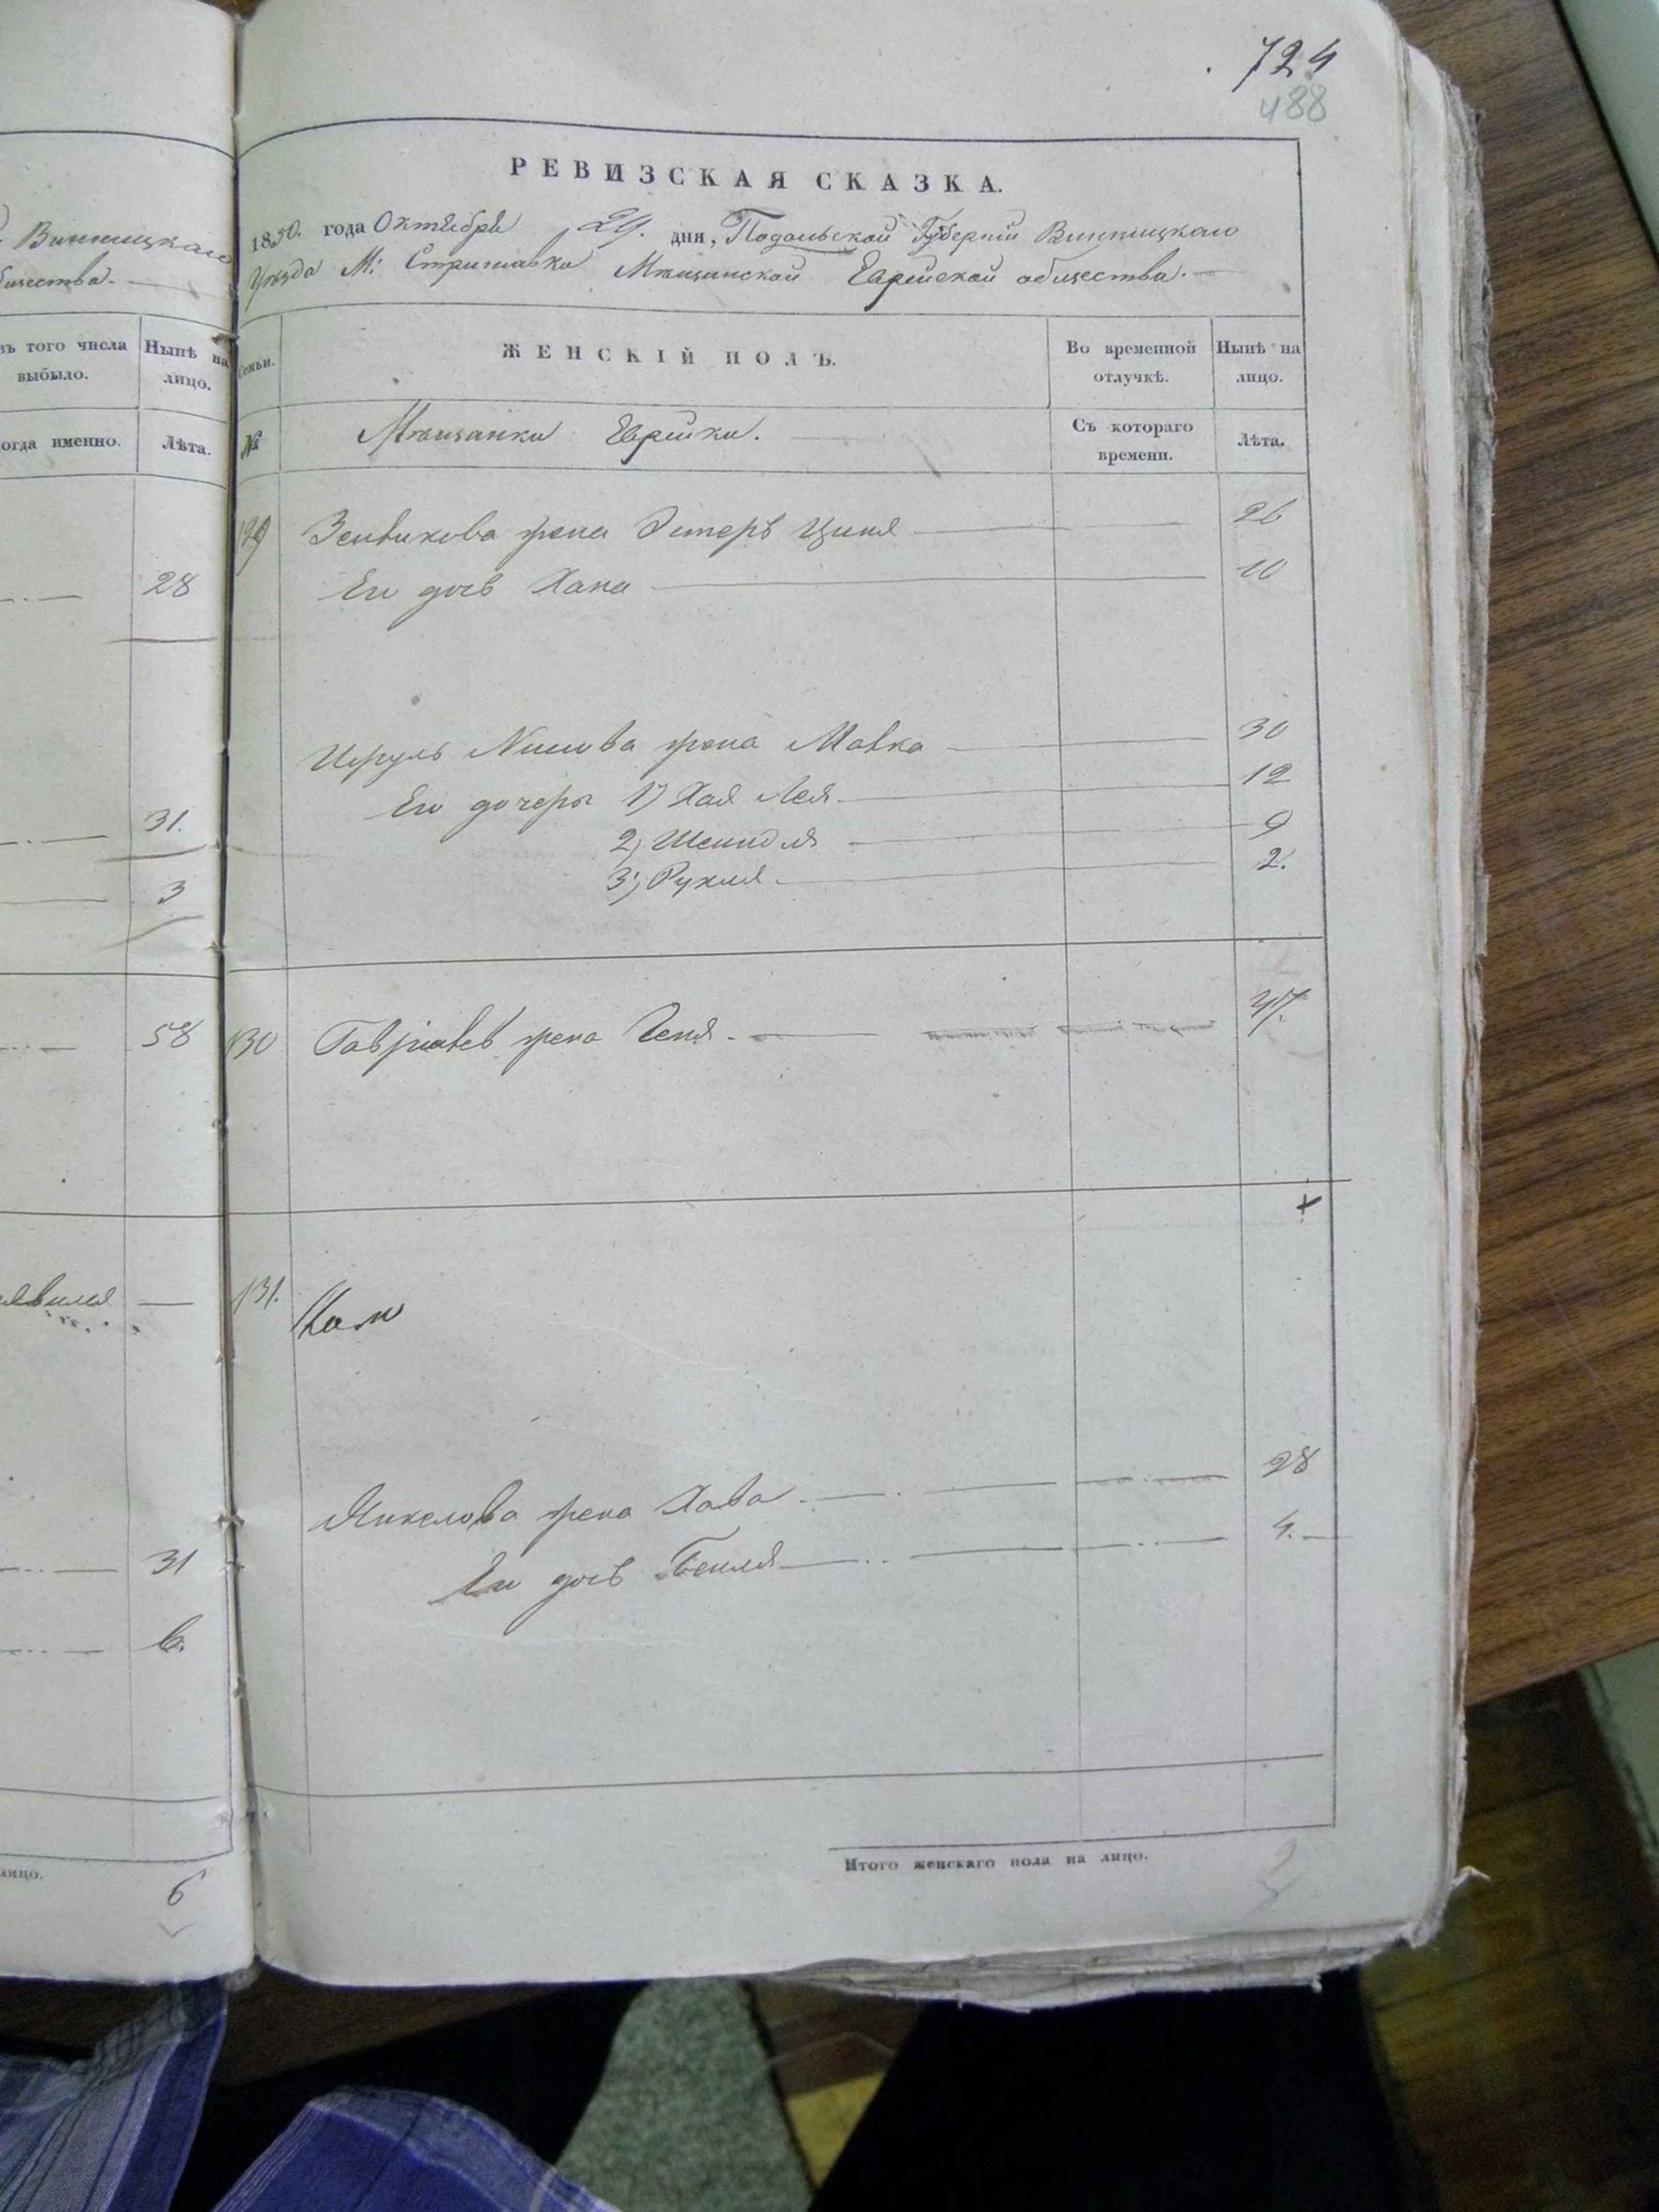 724
488
Винницкаго
бщества.
РЕВИЗСКАЯ СКАЗКА.
1850. года Октября 29. дня, Подольской Губернiи Винницкаго
Уѣзда М: Стрижавки Мѣщанской Еврейской общества.
зъ того числа выбыло.
Нынѣ на лицо.
Семьи.
ЖЕНСКІЙ ПОЛЪ.
Во временной отлучкѣ.
Нынѣ на лицо.
огда именно.
Лѣта.
№
Мѣщанки Еврейки.
Съ котораго времени.
Лѣта.
129 жена Эстеръ Циня 26
28
Ея дочь Хана 10
Нисова жена Малка 30
Его дочери 1) Хая Лея 12
31.
2) Шейндля 9
3) Рухля 2.
3
58
130 жена Геня 47.
131.
Янкелова жена Хава 28
31
Ея дочь Бейля 4.
6.
лицо.
6
Итого женскаго пола на лицо.
9